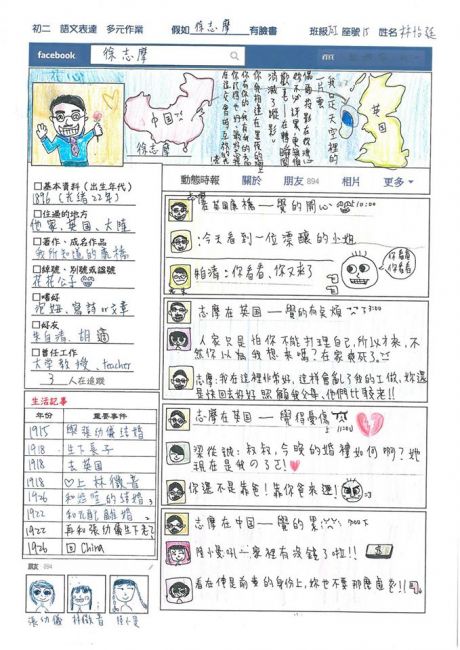 初二 語文表達 多元作業 假如 徐志摩 有臉書 班級 座號 15 姓名
facebook
徐志摩
花心
我是天空裡的
一片雲
偶爾投影在你的波心
你不必訝異 更無須
歡喜 — 在轉瞬間
消滅了蹤影
你我相逢在黑夜的海上
你有你的 我有我的 方向
中国
英国
徐志摩
動態時報 關於 朋友 894 相片 更多
□基本資料(出生年代)
1896 (光緒22年)
□住過的地方
他家、英国、大陸
□著作、成名作品
我所知道的康橋
□綽號、別號或諡號
花花公子
□嗜好
泡妞、寫詩or文章
□好友
朱自清、胡適
□曾任工作
大学教授、teacher
3 人在追蹤
生活記事
年份 重要事件
1915 與張幼儀結婚
1918 生下長子
1918 去英国
1918 ♡上林徽音
1922 和幼儀離婚
1926 回China
朋友 894
張幼儀 林徽音
志摩在英国康橋—覺的開心
:今天看到一位漂釀的小姐
:你看看,你又來了
你看看
你看看
志摩在英国—覺的有夠煩
人家只是怕你不能打理自己,所以才來,不
然你以為我想來嗎?在家爽死了
志摩:我在這裡非常好,這樣會亂了我的工做,妳還
是快回去好好照顧我父母,他們比較老!!
志摩在英国—覺得憂傷
梁從誡:叔叔,今晚的婚禮如何啊?她
現在是我的了ㄛ!♥
你還不是靠爸!靠你爸來追!
志摩在中国—覺的累
陸小曼吼—家裡有沒錢了啦!!
$
看在妳是前妻的身份上,妳也不要那麼直白!!